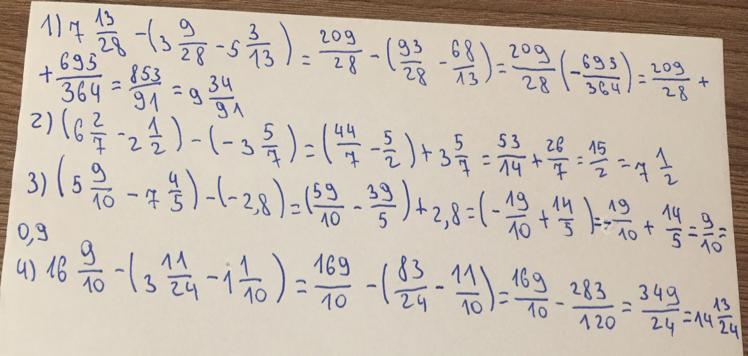 1) 7 13/28 - (3 9/28 - 5 3/13) = 209/28 - (93/28 - 68/13) = 209/28 (- 695/364) = 209/28 +
+ 695/364 = 853/91 = 9 34/91
2) (6 2/7 - 2 1/2) - (-3 5/7) = (44/7 - 5/2) + 3 5/7 = 53/14 + 26/7 = 15/2 = 7 1/2
3) (5 9/10 - 7 4/5) - (-2,8) = (59/10 - 39/5) + 2,8 = (- 19/10 + 14/5) = - 19/10 + 14/5 = 9/10 =
0,9
4) 16 9/10 - (3 11/24 - 1 1/10) = 169/10 - (83/24 - 11/10) = 169/10 - 283/120 = 349/24 = 14 13/24